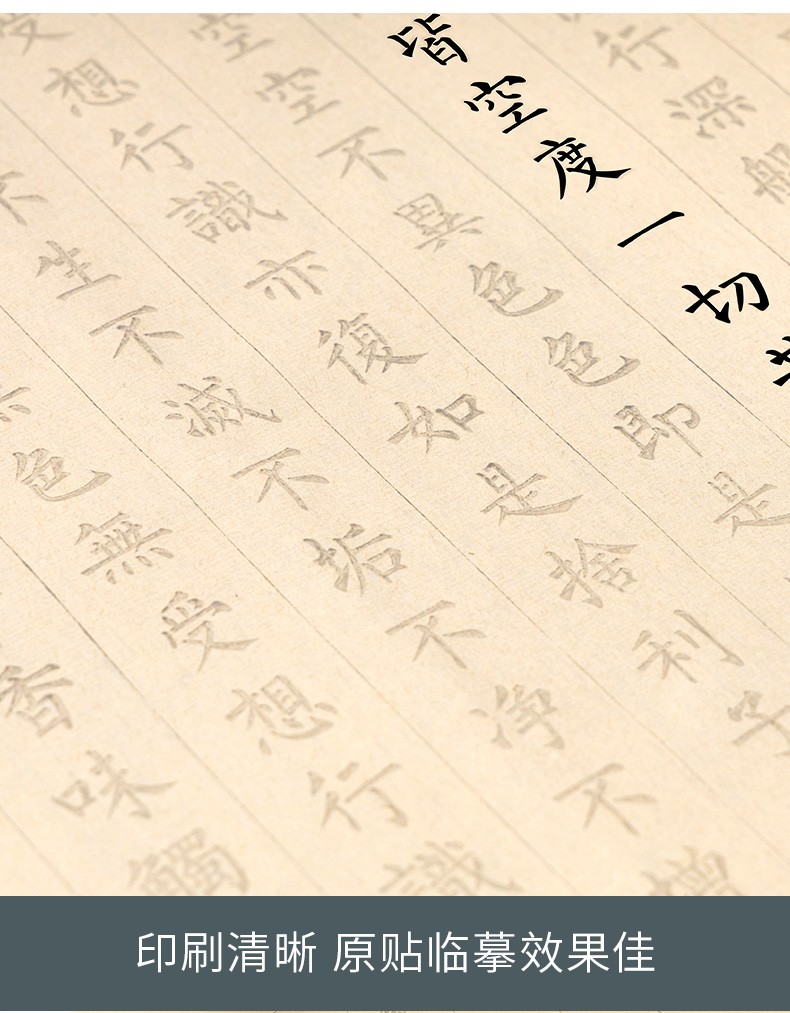 行深般
皆空度一切
空空不異色色即是
受想行識亦復如是捨利子
不生不滅不垢不净不增
色無受想行識
香味觸
印刷清晰 原贴临摹效果佳